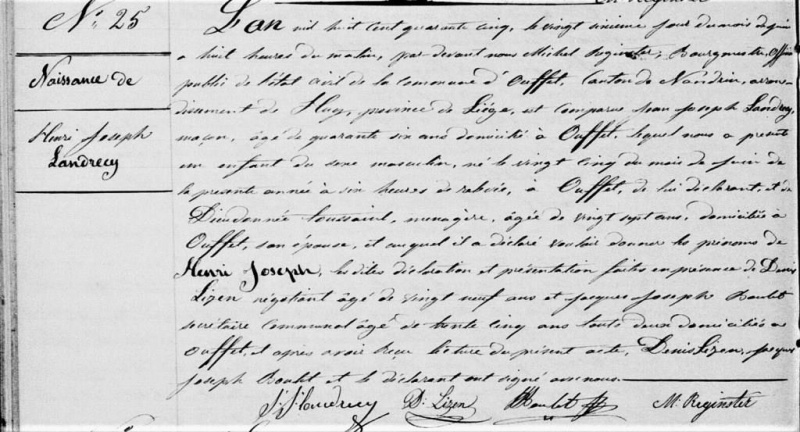 N.° 25
Naissance de
Henri Joseph
Landrecy
L'an mil huit cent quarante cinq, le vingt sixieme jour du mois de juin
a huit heures du matin, par devant nous Michel Reginster, Bourgmestre, Officier
public de l'état civil de la commune d'Ouffet, Canton de Nandrin, arron-
dissement de Huy, province de Liége, est comparu Jean Joseph Landrecy,
maçon, âgé de quarante six ans domicilié à Ouffet, lequel nous a présenté
un enfant du sexe masculin, né le vingt cinq du mois de juin de
la presente année à six heures de relevée, à Ouffet, de lui déclarant, et de
Dieudonnée Toussaint, menagère, âgée de vingt sept ans, domiciliée à
Ouffet, son épouse, et auquel il a déclaré vouloir donner les prénoms de
Henri Joseph, les dites déclaration et présentation faites en présence de Denis
Lizen négotiant âgé de vingt neuf ans et Jacques Joseph Boulet
secrétaire communal âgé de trente cinq ans touts deux domiciliés a
Ouffet, et après avoir reçu lecture du présent acte, Denis Lizen, Jacques
Joseph Boulet et le déclarant ont signé avec nous.
J. J. Landrecy D. Lizen Boulet M. Reginster